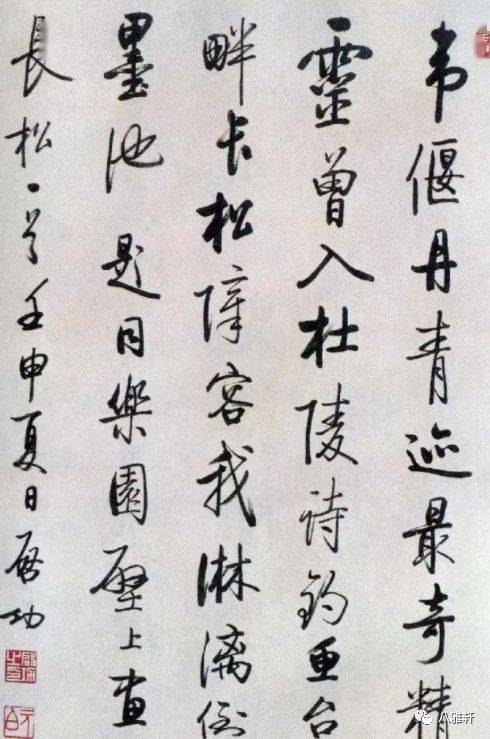 韦偃丹青迹最奇精
靈曾入杜陵诗钓鱼台
畔长松障容我淋漓倒
墨池 题同樂園壁上画
長松一首壬申夏日启功
元白
八雅轩